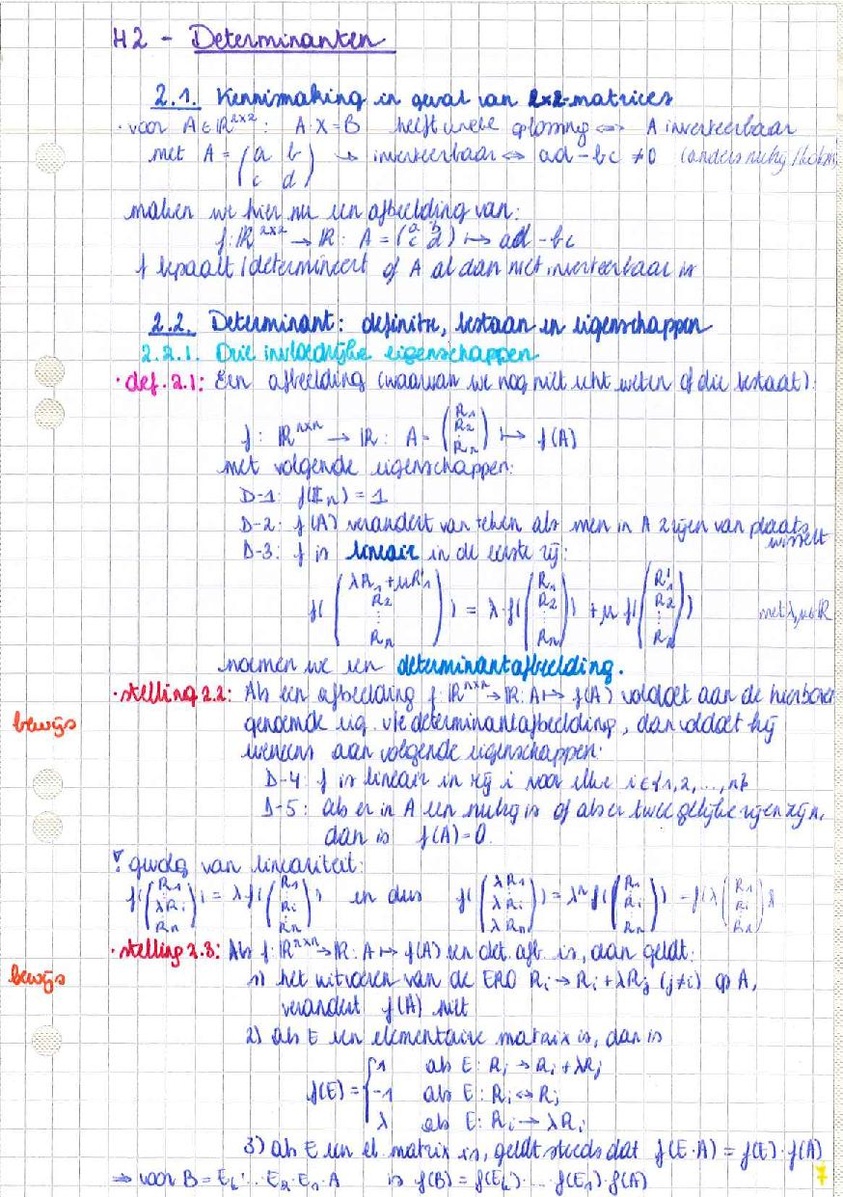 H2 - Determinanten
2.1. Kennismaking in geval van 2x2-matrices
· voor A ∈ ℝ^{2×2}: A·X = B heeft unieke oplossing ⇔ A inverteerbaar
met A = (a b; c d) → inverteerbaar ⇔ ad - bc ≠ 0 (anders nulrij
maken we hier nu een afbeelding van:
f: ℝ^{2×2} → ℝ: A = (a b; c d) ↦ ad - bc
f bepaalt / determineert of A al dan niet inverteerbaar is
2.2. Determinant: definitie, bestaan en eigenschappen
2.2.1. Drie invloedrijke eigenschappen
· def. 2.1: Een afbeelding (waarvan we nog niet echt weten of die bestaat):
f: ℝ^{n×n} → ℝ: A = (R₁; R₂; ⋮; Rₙ) ↦ f(A)
met volgende eigenschappen:
D-1: f(𝕀ₙ) = 1
D-2: f(A) verandert van teken als men in A 2 rijen van plaats wisselt
D-3: f is lineair in de eerste rij:
f( (λR₁ + μR'₁; R₂; ⋮; Rₙ) ) = λ·f( (R₁; R₂; ⋮; Rₙ) ) + μ f( (R'₁; R₂; ⋮; Rₙ) ) met λ, μ ∈ ℝ
noemen we een determinantafbeelding.
· stelling 2.2: Als een afbeelding f: ℝ^{n×n} → ℝ: A ↦ f(A) voldoet aan de hierboven
bewijs
genoemde eig. v/e determinantafbeelding, dan voldoet hij
eveneens aan volgende eigenschappen:
D-4: f is lineair in rij i voor elke i ∈ {1, 2, ..., n}
D-5: als er in A een nulrij is of als er twee gelijke rijen zijn,
dan is f(A) = 0.
gevolg van lineariteit:
f( (R₁; λRᵢ; Rₙ) ) = λ f( (R₁; Rᵢ; Rₙ) ) en dus f( (λR₁; λRᵢ; λRₙ) ) = λⁿ f( (R₁; Rᵢ; Rₙ) ) = f( λ (R₁; Rᵢ; Rₙ) )
· stelling 2.3: Als f: ℝ^{n×n} → ℝ: A ↦ f(A) een det. afb. is, dan geldt:
bewijs
1) het uitvoeren van de ERO Rᵢ → Rᵢ + λRⱼ (j≠i) op A,
verandert f(A) niet
2) als E een elementaire matrix is, dan is
f(E) = { 1 als E: Rᵢ → Rᵢ + λRⱼ
-1 als E: Rᵢ ↔ Rⱼ
λ als E: Rᵢ → λRᵢ
3) als E een el. matrix is, geldt steeds dat f(E·A) = f(E)·f(A)
⇒ voor B = Eₖ·...·E₂·E₁·A is f(B) = f(Eₖ)·...·f(E₁)·f(A)
7